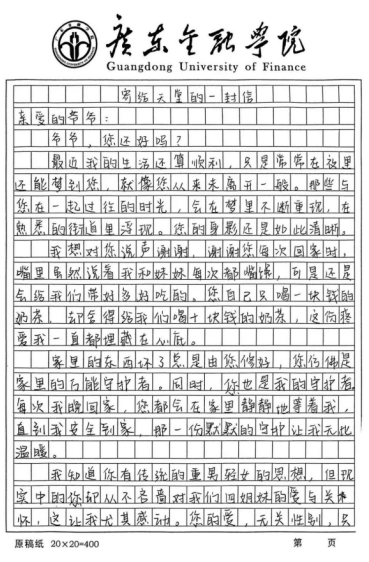 广东金融学院
Guangdong University of Finance
寄给天堂的一封信
亲爱的爷爷:
爷爷,您还好吗?
最近我的生活还算顺利,只是常常在夜里
还能梦到您,就像您从来未离开一般。那些与
您在一起过往的时光,会在梦里不断重现,在
熟悉的街道里浮现。您的身影还是如此清晰。
我想对您说声谢谢,谢谢您每次回家时,
嘴里虽然说着我和妹妹每次都嘴馋,可是还是
会给我们带好多好吃的。您自己只喝一块钱的
奶茶、却舍得给我们喝十块钱的奶茶,这份疼
爱我一直都埋藏在心底。
家里的东西坏了总是由您修好,您仿佛是
家里的万能守护者。同时,你也是我的守护者,
每次我晚回家,您都会在家里静静地等着我,
直到我安全到家,那一份默默的守护让我无比
温暖。
我知道你有传统的重男轻女的思想,但现
实中的您却从不吝啬对我们四姐妹的爱与关
怀,这让我尤其感动。您的爱,无关性别,只
原稿纸 20×20=400
第 页